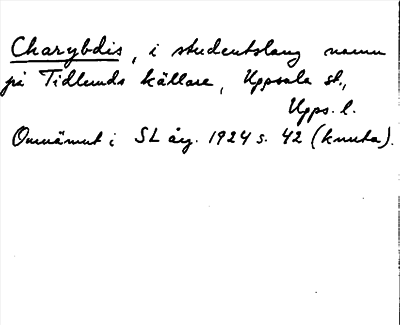 Charybdis, i studentslang namn
på Tidlunds källare, Uppsala st.,
Upps. l.
Omnämnt i SL årg. 1924 s. 42 (knuta).